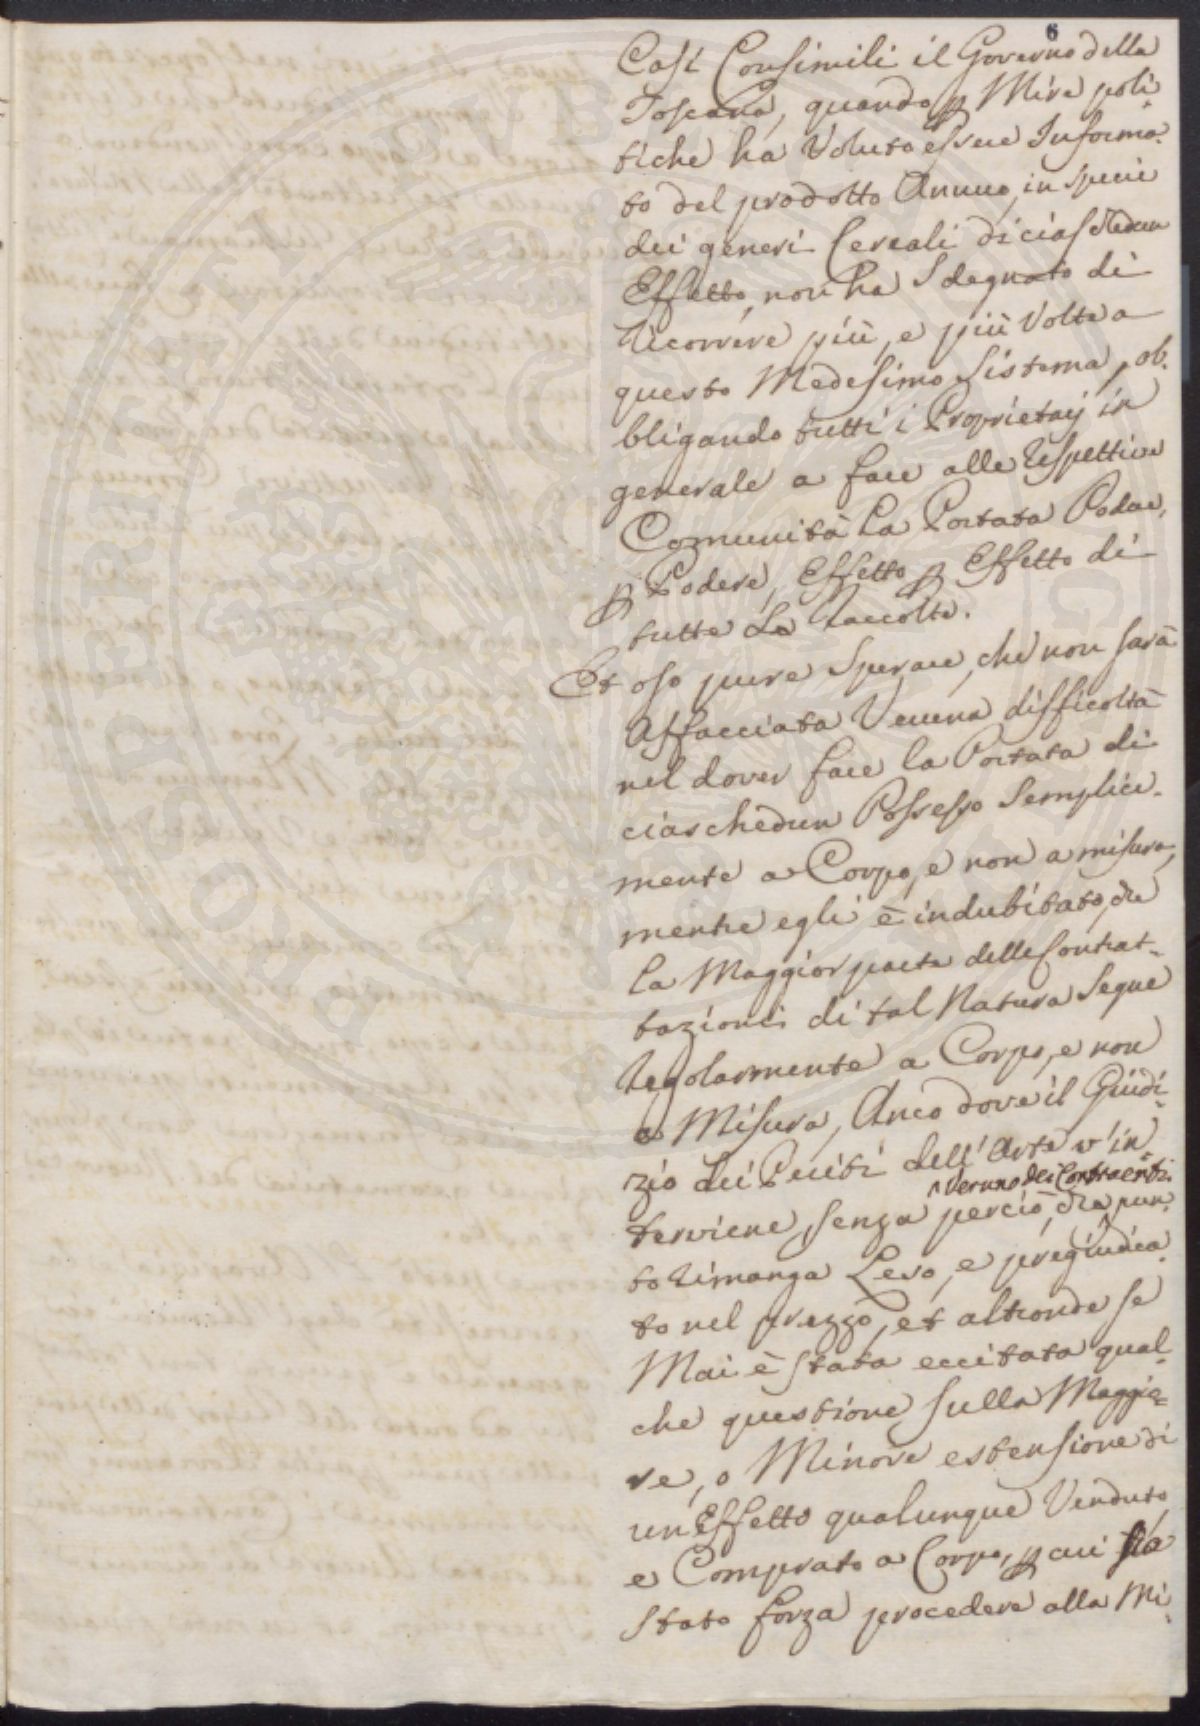 6
Casi Consimili il Governo della
Toscana, quando p Mire poli-
tiche ha Voluto essere Informa-
to del prodotto Annuo, in specie
dei generi Cereali di ciaschedun
Effetto, non ha Sdegnato di
ricorrere più, e più Volte a
questo Medesimo Sistema, ob-
bligando tutti i Proprietarj in
generale a fare alle respettive
Comunità La Portata Podere,
p Podere, Effetto p Effetto di
tutte Le raccolte.
Et oso pure Sperare, che non sarà
Affacciata Veruna difficoltà
nel dover fare la Portata di
ciaschedun Possesso Semplice-
mente a Corpo, e non a misura,
mentre egli è indubitato, che
la Maggior parte delle Contrat-
tazioni di tal Natura Segue
regolarmente a Corpo, e non
a Misura, Anco dove il Giudi-
zio dei Periti dell'Arte v'in-
Veruno dei Contraenti
terviene, senza perciò, che pun-
to rimanga Leso, e pregiudica-
to nel prezzo, et altronde se
Mai è stata eccitata qual-
che questione sulla Maggio-
re, o Minore estensione di
un Effetto qualunque Venduto
e Comprato a Corpo, p cui sia
stato forza procedere alla Mi-